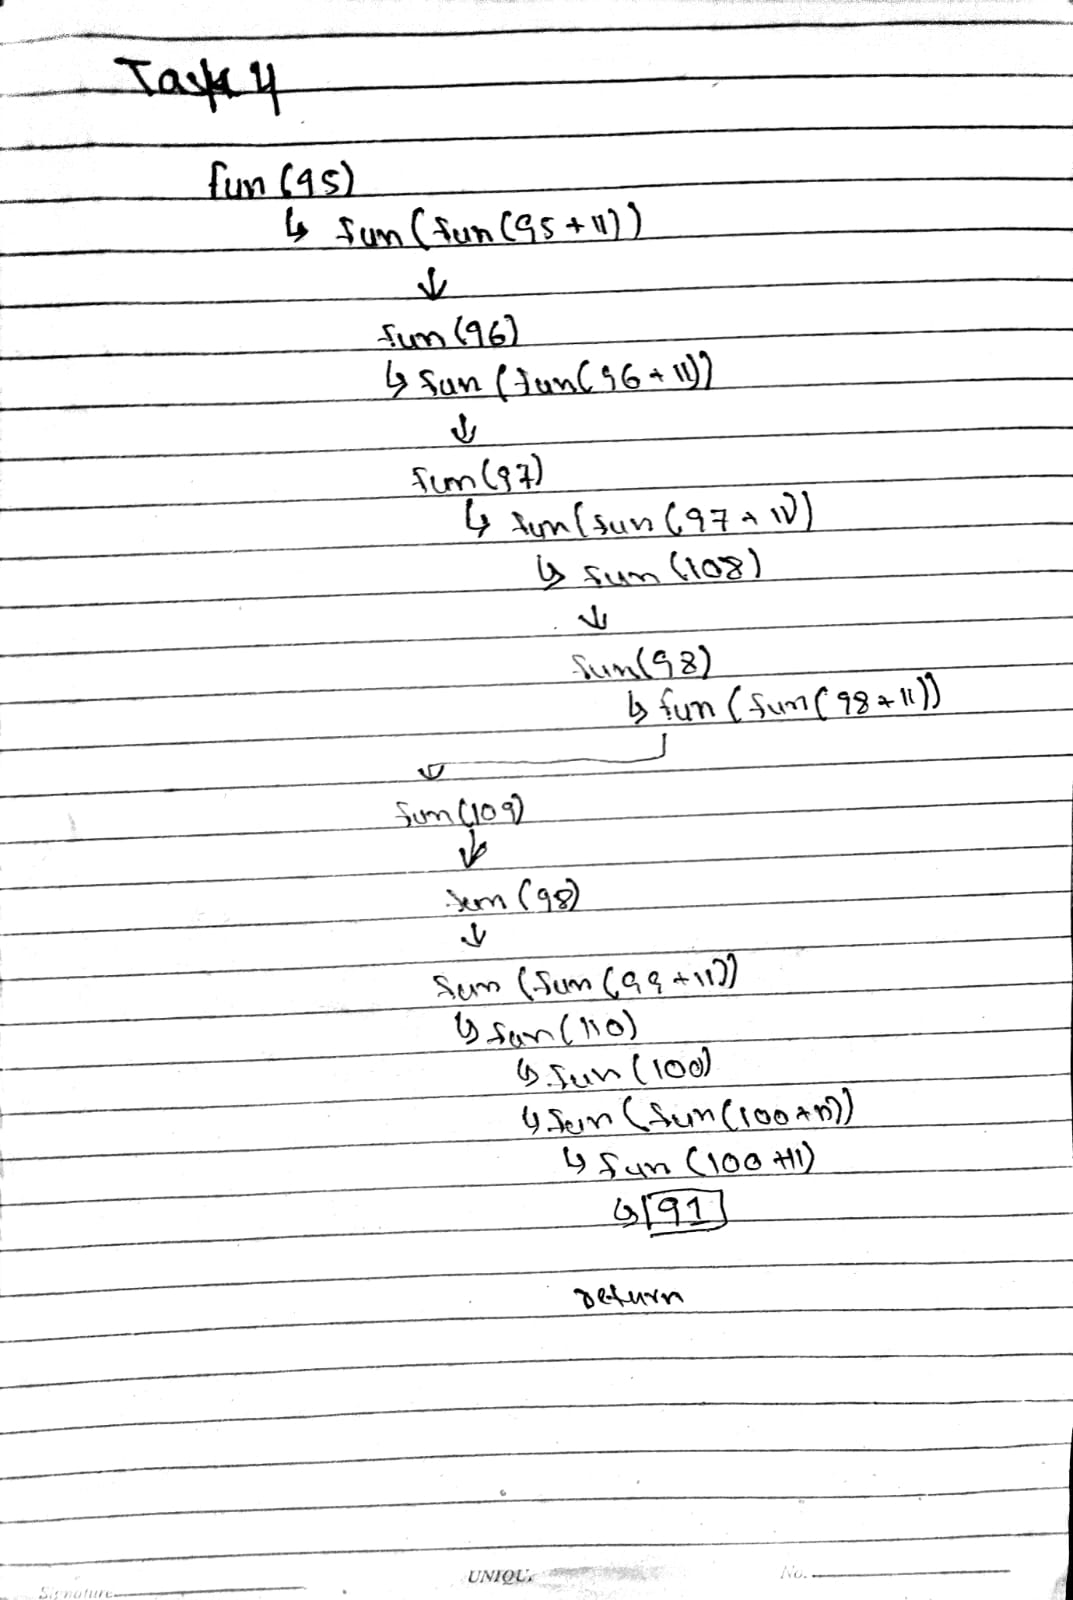 Task 4
fun (95)
↳ fun (fun (95 + 11))
↓
fun (96)
↳ fun (fun (96 + 11))
↓
fun (97)
↳ fun (fun (97 + 11))
↳ fun (108)
↓
fun (98)
↳ fun (fun (98 + 11))
↓
fun (109)
↓
fun (98)
↓
fun (fun (99 + 11))
↳ fun (110)
↳ fun (100)
↳ fun (fun (100 + 11))
↳ fun (100 + 11)
↳ 91
return
UNIQUE
No.
Signature